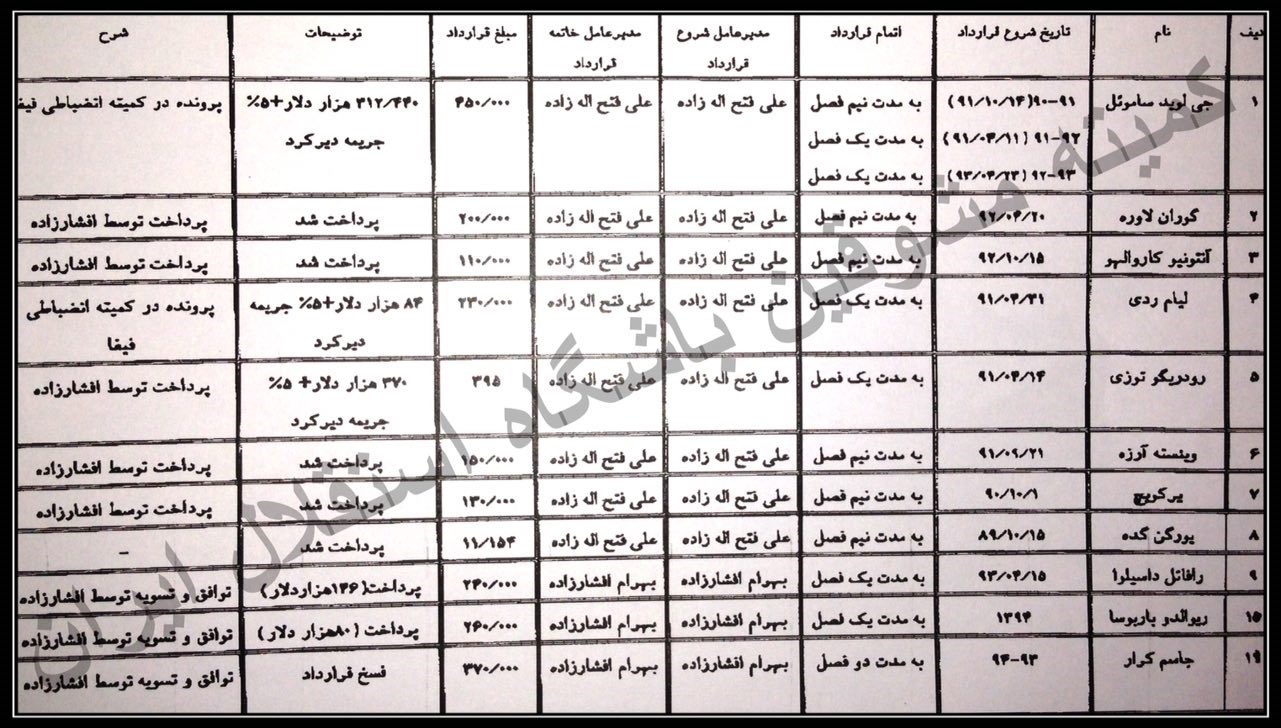 ردیف نام تاریخ شروع قرارداد اتمام قرارداد مدیرعامل شروع قرارداد مدیرعامل خاتمه قرارداد مبلغ قرارداد توضیحات شرح
۱ جی لوید ساموئل ۹۰-۹۱(۹۱/۱۰/۱۴) به مدت نیم فصل علی فتح اله زاده علی فتح اله زاده ۴۵۰/۰۰۰ ۳۱۲/۴۴۰ هزار دلار+۵% پرونده در کمیته انضباطی فیفا
۹۱-۹۲ (۹۱/۰۴/۱۱) به مدت یک فصل جریمه دیرکرد
۹۲-۹۳ (۹۳/۰۴/۲۳) به مدت یک فصل
۲ گوران لاوره ۹۲/۰۴/۲۰ به مدت نیم فصل علی فتح اله زاده علی فتح اله زاده ۲۰۰/۰۰۰ پرداخت شد پرداخت توسط افشارزاده
۳ آنتونیو کاروالهو ۹۲/۱۰/۱۵ به مدت نیم فصل علی فتح اله زاده علی فتح اله زاده ۱۱۰/۰۰۰ پرداخت شد پرداخت توسط افشارزاده
۴ لیام ردی ۹۱/۰۴/۳۱ به مدت یک فصل علی فتح اله زاده علی فتح اله زاده ۲۳۰/۰۰۰ ۸۴ هزار دلار+۵% جریمه پرونده در کمیته انضباطی
دیرکرد فیفا
۵ رودریگو توزی ۹۱/۰۴/۱۴ به مدت یک فصل علی فتح اله زاده علی فتح اله زاده ۳۹۵ ۳۷۰ هزار دلار+ ۵% پرداخت توسط افشارزاده
جریمه دیرکرد
۶ وینسته آرزه ۹۱/۰۹/۲۱ به مدت نیم فصل علی فتح اله زاده علی فتح اله زاده ۱۵۰/۰۰۰ پرداخت شد پرداخت توسط افشارزاده
۷ یرکویچ ۹۰/۱۰/۱ به مدت نیم فصل علی فتح اله زاده علی فتح اله زاده ۱۳۰/۰۰۰ پرداخت شد پرداخت توسط افشارزاده
۸ یورگن گده ۸۹/۱۰/۱۵ به مدت نیم فصل علی فتح اله زاده علی فتح اله زاده ۱۱/۱۵۴ پرداخت شد -
۹ رافائل داسیلوا ۹۳/۰۴/۱۵ به مدت یک فصل بهرام افشارزاده بهرام افشارزاده ۲۴۰/۰۰۰ پرداخت(۱۳۶هزاردلار) توافق و تسویه توسط افشارزاده
۱۵ ریوالدو باربوسا ۱۳۹۴ به مدت یک فصل بهرام افشارزاده بهرام افشارزاده ۲۶۰/۰۰۰ پرداخت (۸۰هزار دلار) توافق و تسویه توسط افشارزاده
۱۹ جاسم کرار ۹۳-۹۴ به مدت دو فصل بهرام افشارزاده بهرام افشارزاده ۳۷۰/۰۰۰ فسخ قرارداد توافق و تسویه توسط افشارزاده
کمیته متوقین باشگاه استقلال ایران